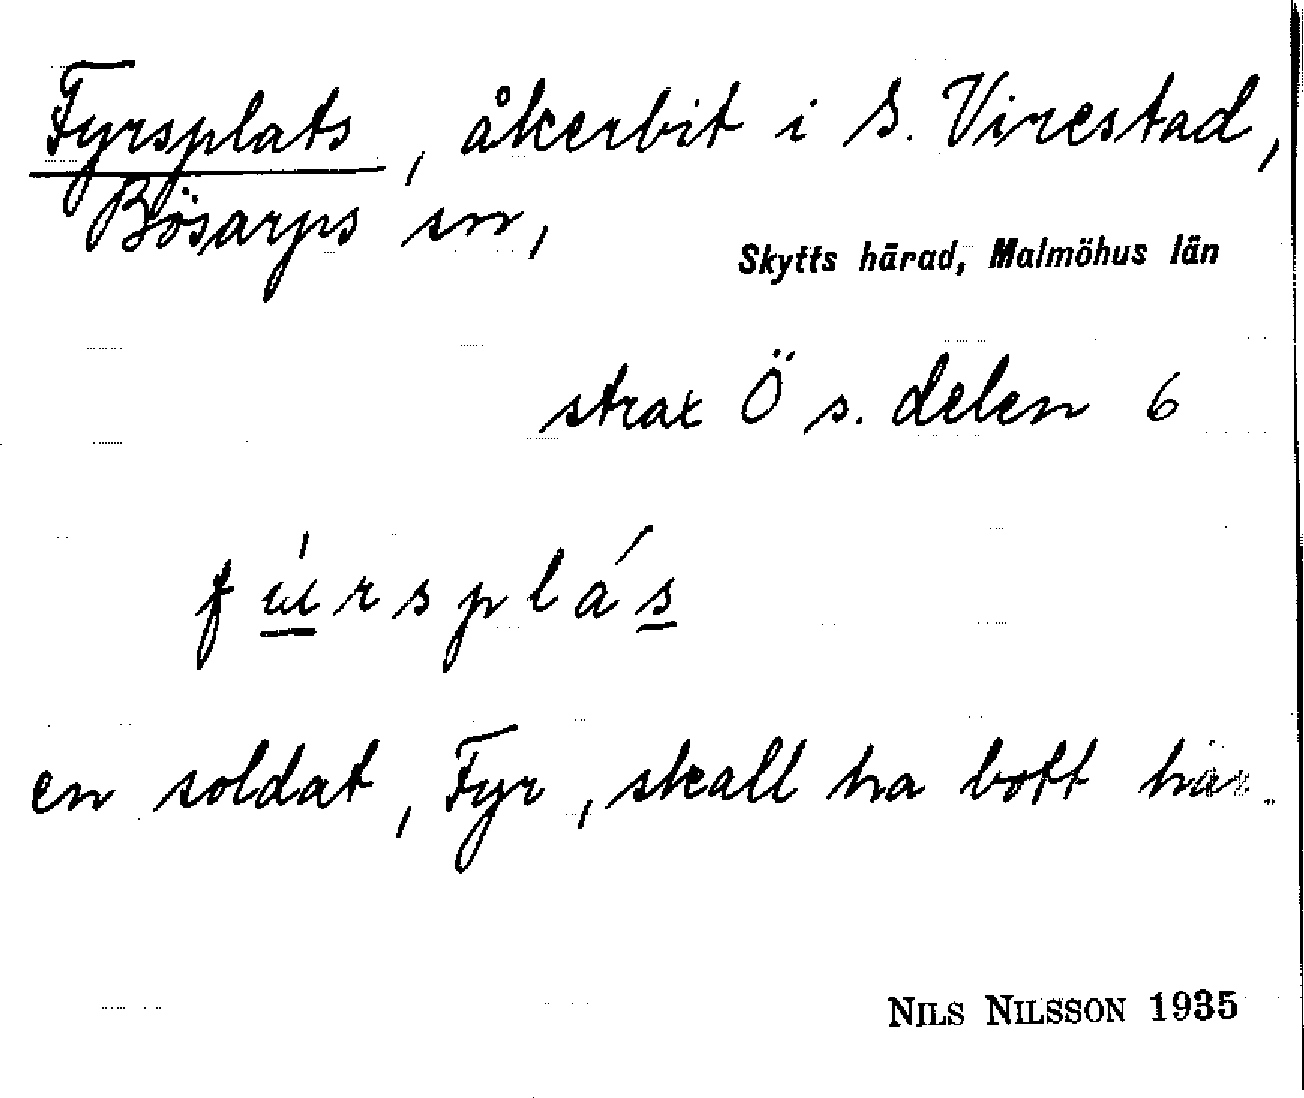 Fyrsplats, åkerbit i S. Virestad,
Bösarps sn,
Skytts härad, Malmöhus län
strax Ö s. delen 6
fúrsplás
en soldat, Fyr, skall ha bott här.
NILS NILSSON 1935